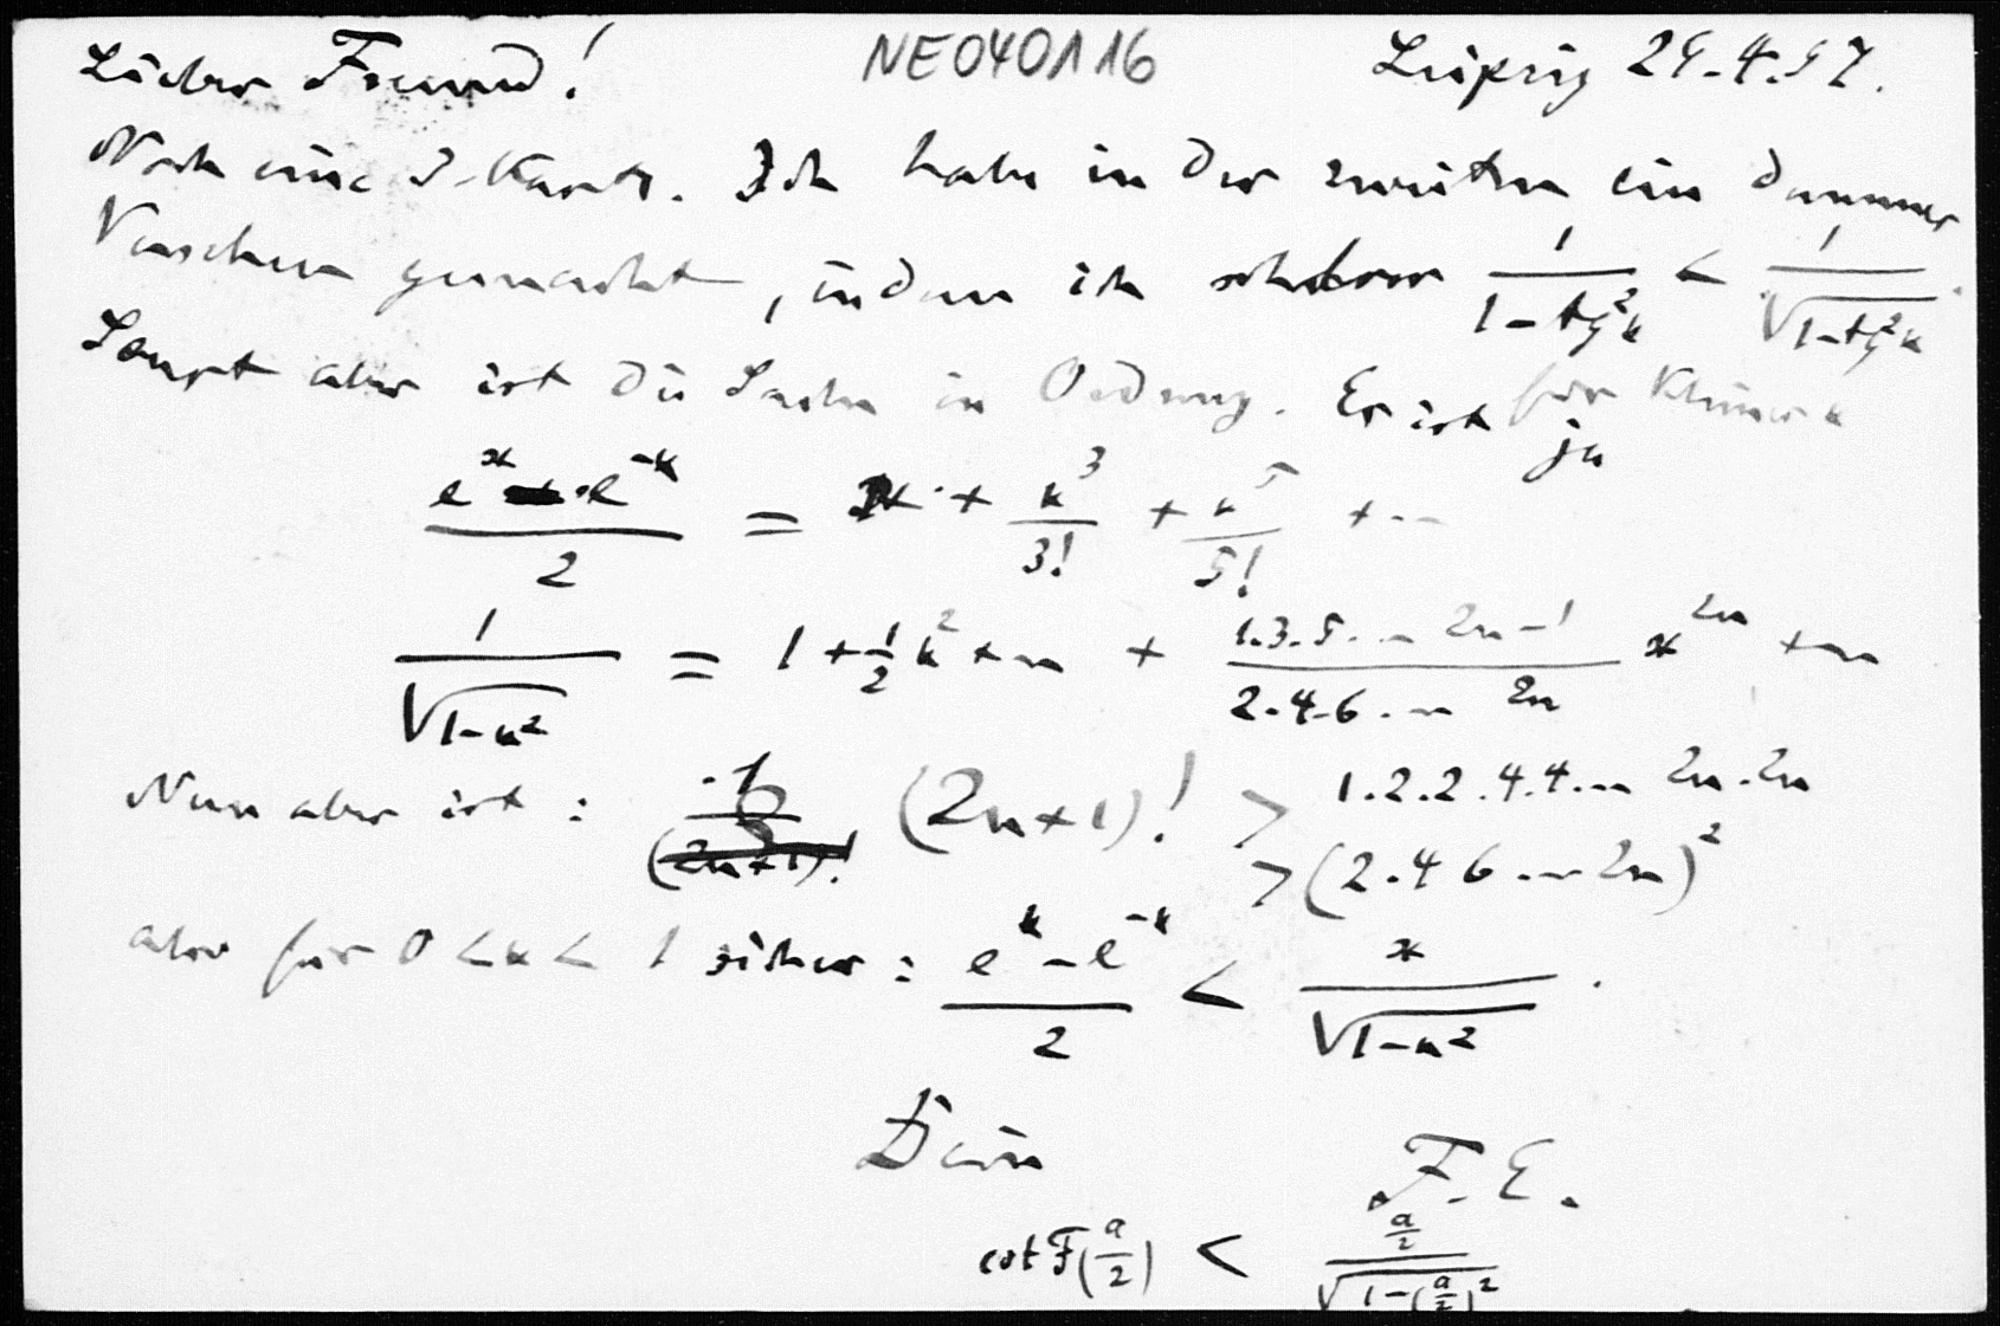 Lieber Freund! NE040116 Leipzig 24.4.57.
Noch eine 3-Karte. Ich habe in der zweiten ein dummes
Versehen gemacht, indem ich schrieb 1/(1-tg²x) < 1/√(1-tg²x).
Sonst aber ist die Sache in Ordnung. Es ist für kleine x
ja
(e^x - e^-x)/2 = x + x³/3! + x⁵/5! + ...
1/√(1-x²) = 1 + 1/2 x² + ... + (1.3.5... 2n-1)/(2.4.6... 2n) x^2n + ...
Nun aber ist : (2n+1)! > 1.2.2.4.4... 2n.2n
> (2.4 6 ... 2n)²
also für 0 < x < 1 sicher : (e^x - e^-x)/2 < x/√(1-x²) .
Dein F. E.
cot F(a/2) < (a/2)/√(1-(a/2)²)